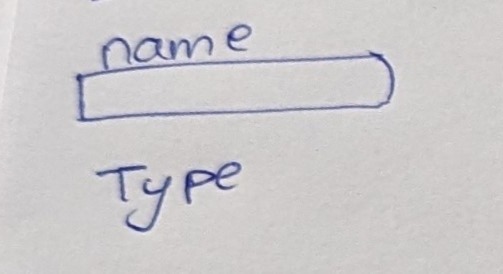 name
Type